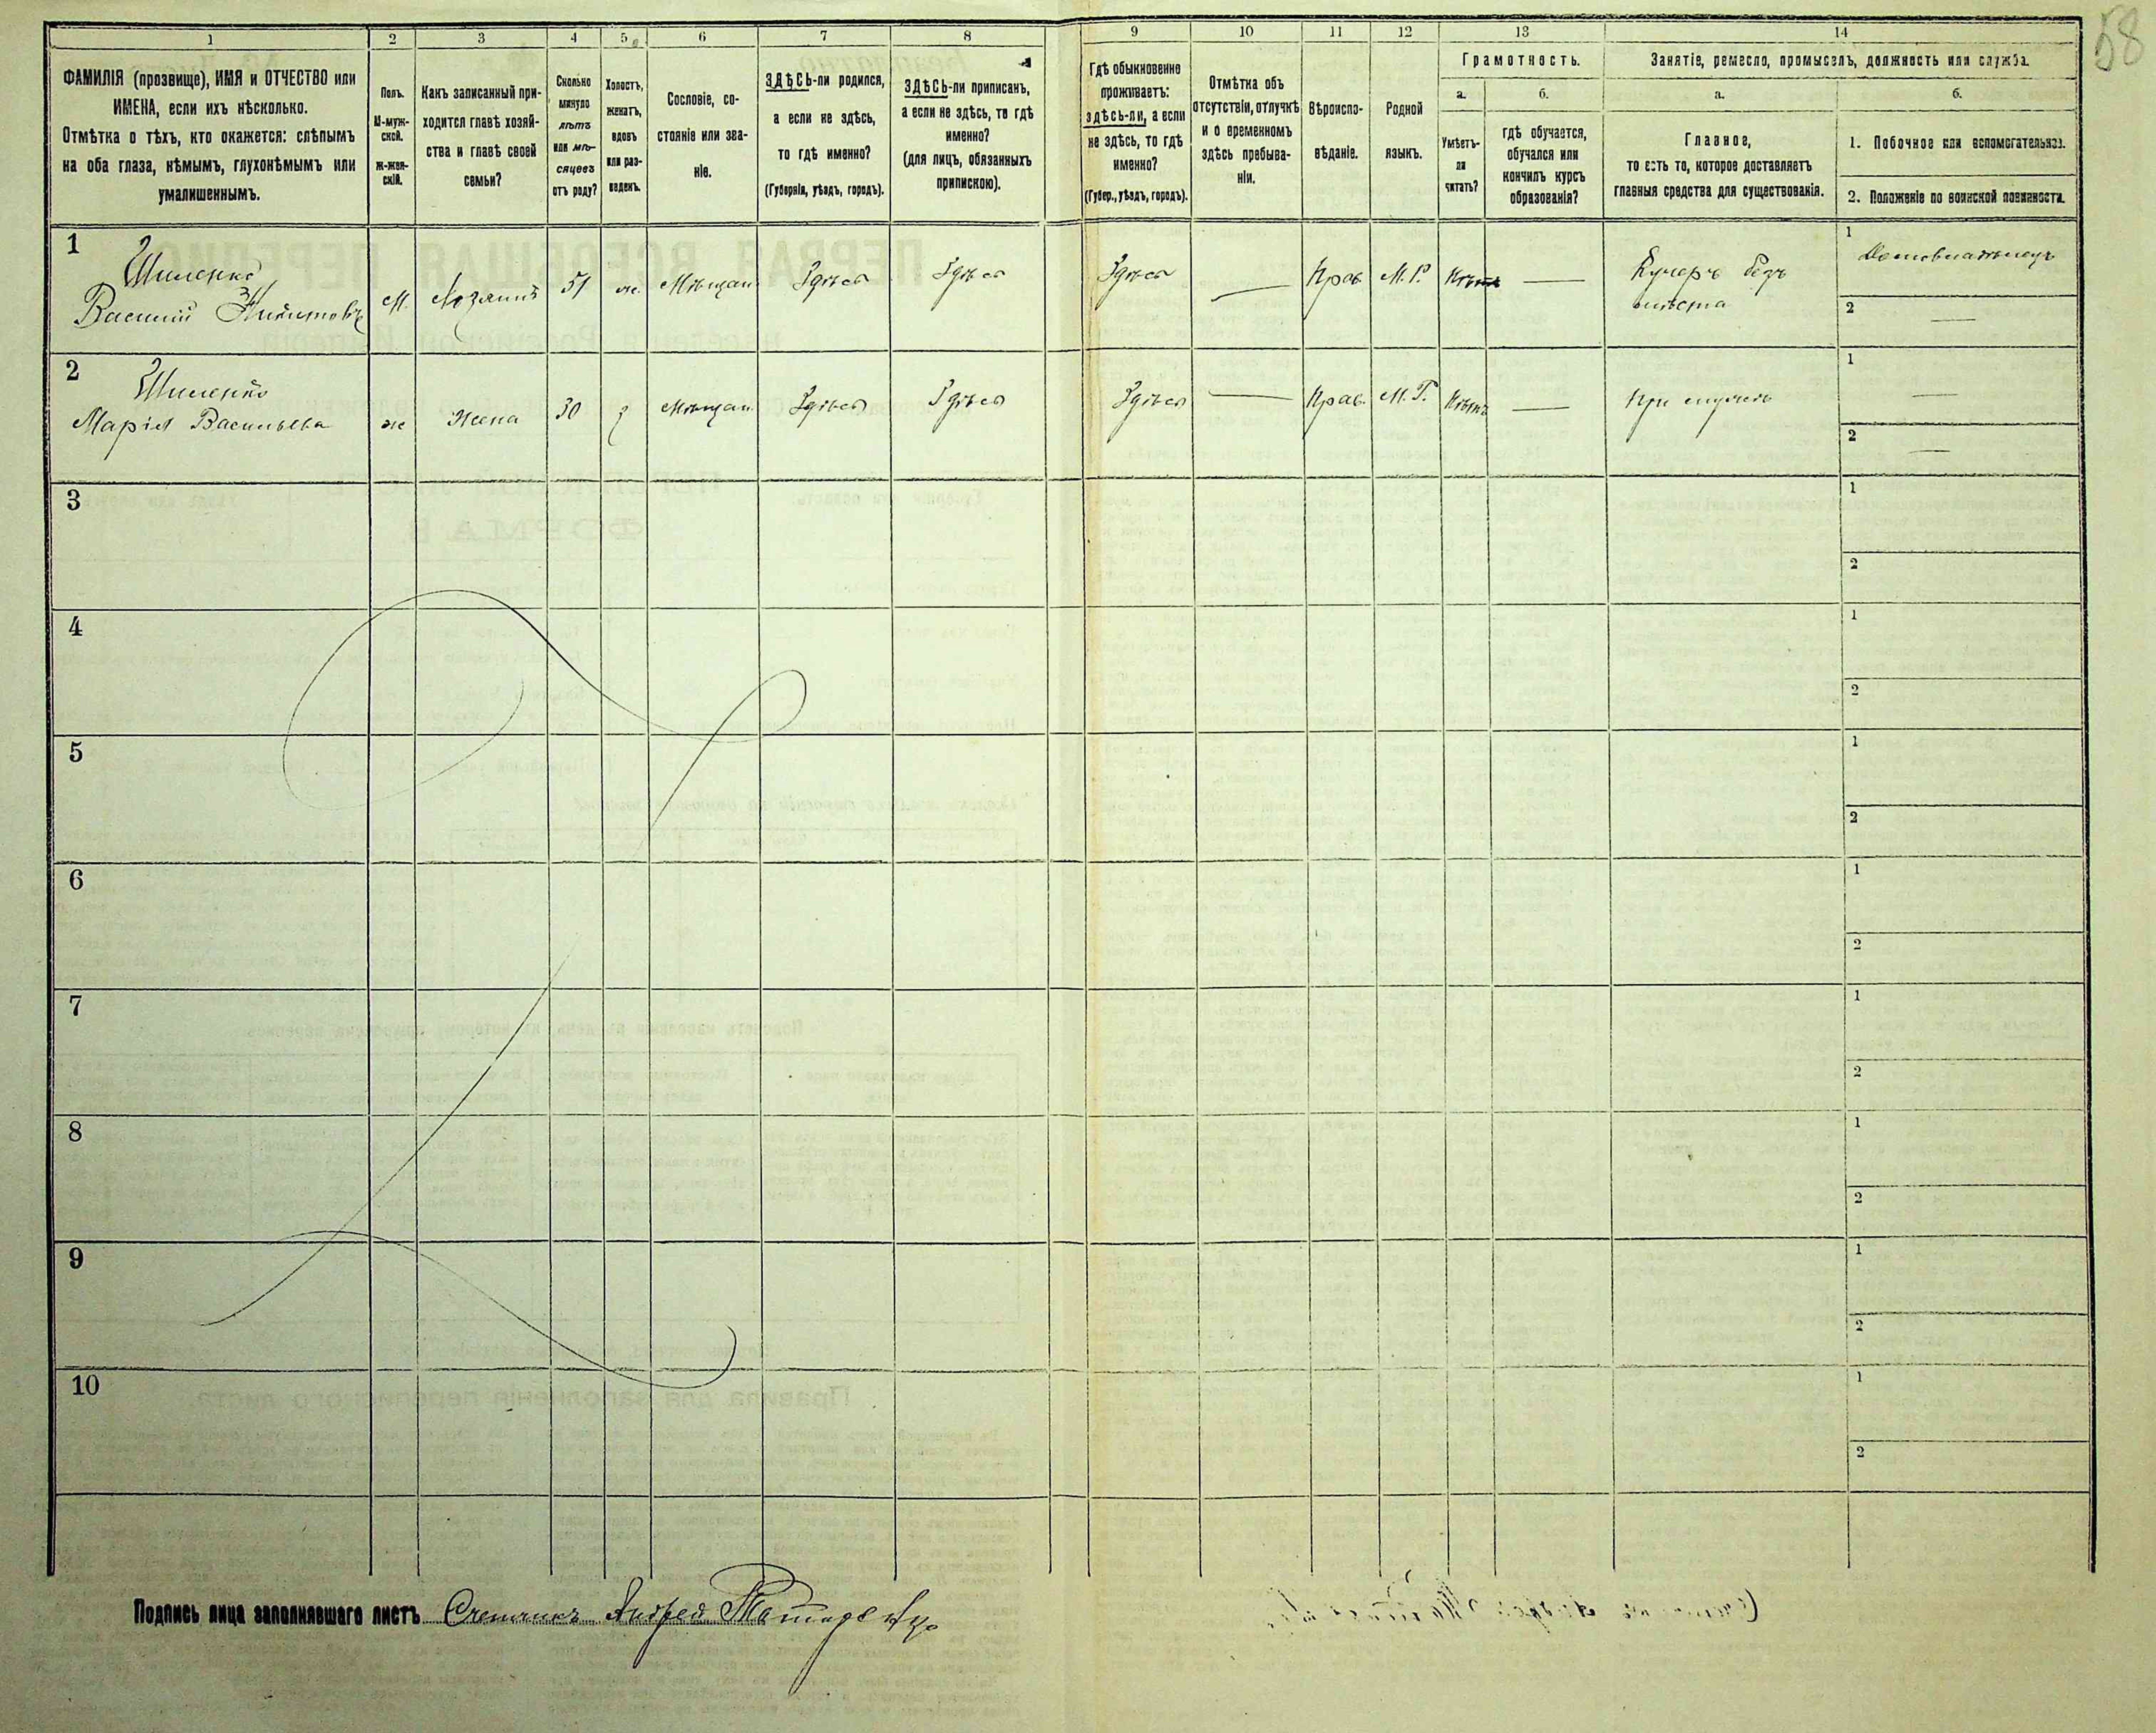 58
1 2 3 4 5 6 7 8 9 10 11 12 13 14
ФАМИЛІЯ (прозвище), ИМЯ и ОТЧЕСТВО или
ИМЕНА, если ихъ нѣсколько.
Отмѣтка о тѣхъ, кто окажется: слѣпымъ
на оба глаза, нѣмымъ, глухонѣмымъ или
умалишеннымъ.
Полъ.
М-муж-
ской.
Ж-жен-
скій.
Какъ записанный при-
ходится главѣ хозяй-
ства и главѣ своей
семьи?
Сколько
минуло
лѣтъ
или мѣ-
сяцевъ
отъ роду?
Холостъ,
женатъ,
вдовъ
или раз-
веденъ.
Сословіе, со-
стояніе или зва-
ніе.
ЗДѢСЬ-ли родился,
а если не здѣсь,
то гдѣ именно?
(Губернія, уѣздъ, городъ).
ЗДѢСЬ-ли приписанъ,
а если не здѣсь, то гдѣ
именно?
(для лицъ, обязанныхъ
припискою).
Гдѣ обыкновенно
проживаетъ:
здѣсь-ли, а если
не здѣсь, то гдѣ
именно?
(Губер., уѣздъ, городъ).
Отмѣтка объ
отсутствіи, отлучкѣ
и о временномъ
здѣсь пребыва-
ніи.
Вѣроиспо-
вѣданіе.
Родной
языкъ.
Грамотность.
а.
Умѣетъ-
ли
читать?
б.
гдѣ обучается,
обучался или
кончилъ курсъ
образованія?
Занятіе, ремесло, промыселъ, должность или служба.
а.
Главное,
то есть то, которое доставляетъ
главныя средства для существованія.
б.
1. Побочное или вспомогательное.
2. Положеніе по воинской повинности.
1
Шиленко
Василий Никитовъ
м. Хозяинъ 51 ж. Мѣщан. Здѣсь Здѣсь Здѣсь — Прав. М. Р. Нѣтъ — Кучеръ безъ
мѣста
1 Домовладѣлецъ
2 —
2
Шиленко
Марія Васильева
ж Жена 30 з Мѣщан. Здѣсь Здѣсь Здѣсь — Прав. М. Р. Нѣтъ — При мужѣ
1 —
2 —
3 1
2
4 1
2
5 1
2
6 1
2
7 1
2
8 1
2
9 1
2
10 1
2
Подпись лица заполнявшаго листъ Счетчикъ Андрей